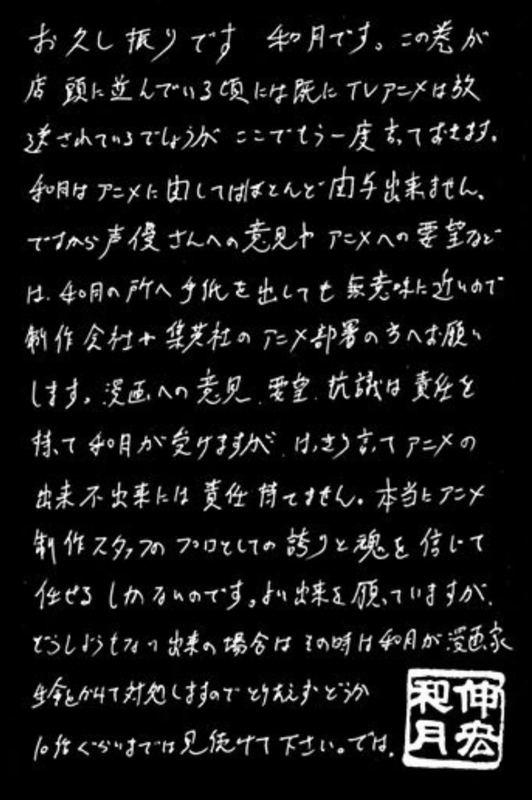 お久し振りです 和月です。この巻が
店頭に並んでいる頃には既にTVアニメは放
送されているでしょうが ここでもう一度言っておきます。
和月はアニメに関してはほとんど関与出来ません。
ですから声優さんへの意見や アニメへの要望など
は、和月の所へ手紙を出しても 無意味に近いので
制作会社や集英社のアニメ部署の方へお願い
します。漫画への意見、要望、抗議は責任を
持って和月が受けますが、はっきり言ってアニメの
出来不出来には責任持てません。本当にアニメ
制作スタッフの プロとしての誇りと魂を信じて
任せるしかないのです。よい出来を願っていますが、
どうしようもない出来の場合は その時は和月が漫画家
生命をかけて対処しますので とりあえずどうか
10話ぐらいまでは見続けて下さい。では。
伸宏
和月